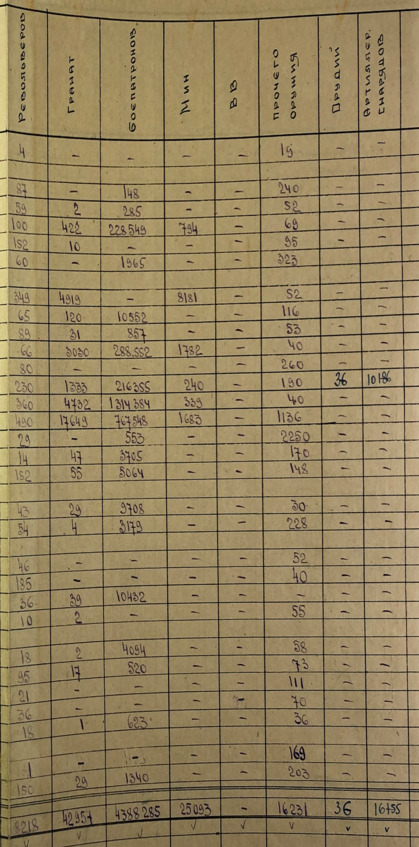 Револьверов Гранат Боепатронов Мин ВВ Прочего оружия Орудий Артиллер. снарядов
4 – – – 15 – –
87 – 148 – – 240 – –
59 2 285 – – 52 – –
100 422 228549 794 – 69 – –
152 10 – – – 95 – –
60 – 1965 – – 323
349 4919 – 8181 – 52 – –
65 120 10552 – – 116 – –
89 31 857 – – 53 – –
66 3030 288.552 1732 – 40 – –
80 – – – – 260 – –
230 1333 216355 240 – 190 36 10186
360 4732 1314384 339 – 40 – –
490 17649 767548 1683 – 1136 – –
29 – 553 – – 2250 – –
14 47 3705 – – 170 – –
152 55 5064 – – 148 – –
43 29 9708 – – 30 – –
54 4 3179 – – 228 – –
46 – – – – 52 – –
185 – – – – 40 – –
36 39 10432 – – – – –
10 2 – – – 55 – –
18 2 4094 – – 58 – –
95 17 520 – – 73 – –
21 – – – – 111 – –
36 – – – – 70 – –
18 1 623 – – 36 – –
1 – – – – 169 – –
150 29 1340 – – 203 – –
8218 42957 4388285 25093 – 16231 36 16755